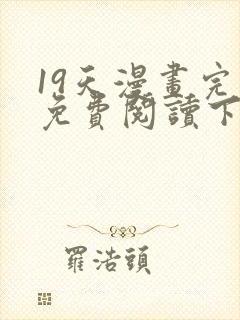 19天漫畫完
免費閱讀下
羅浩頭